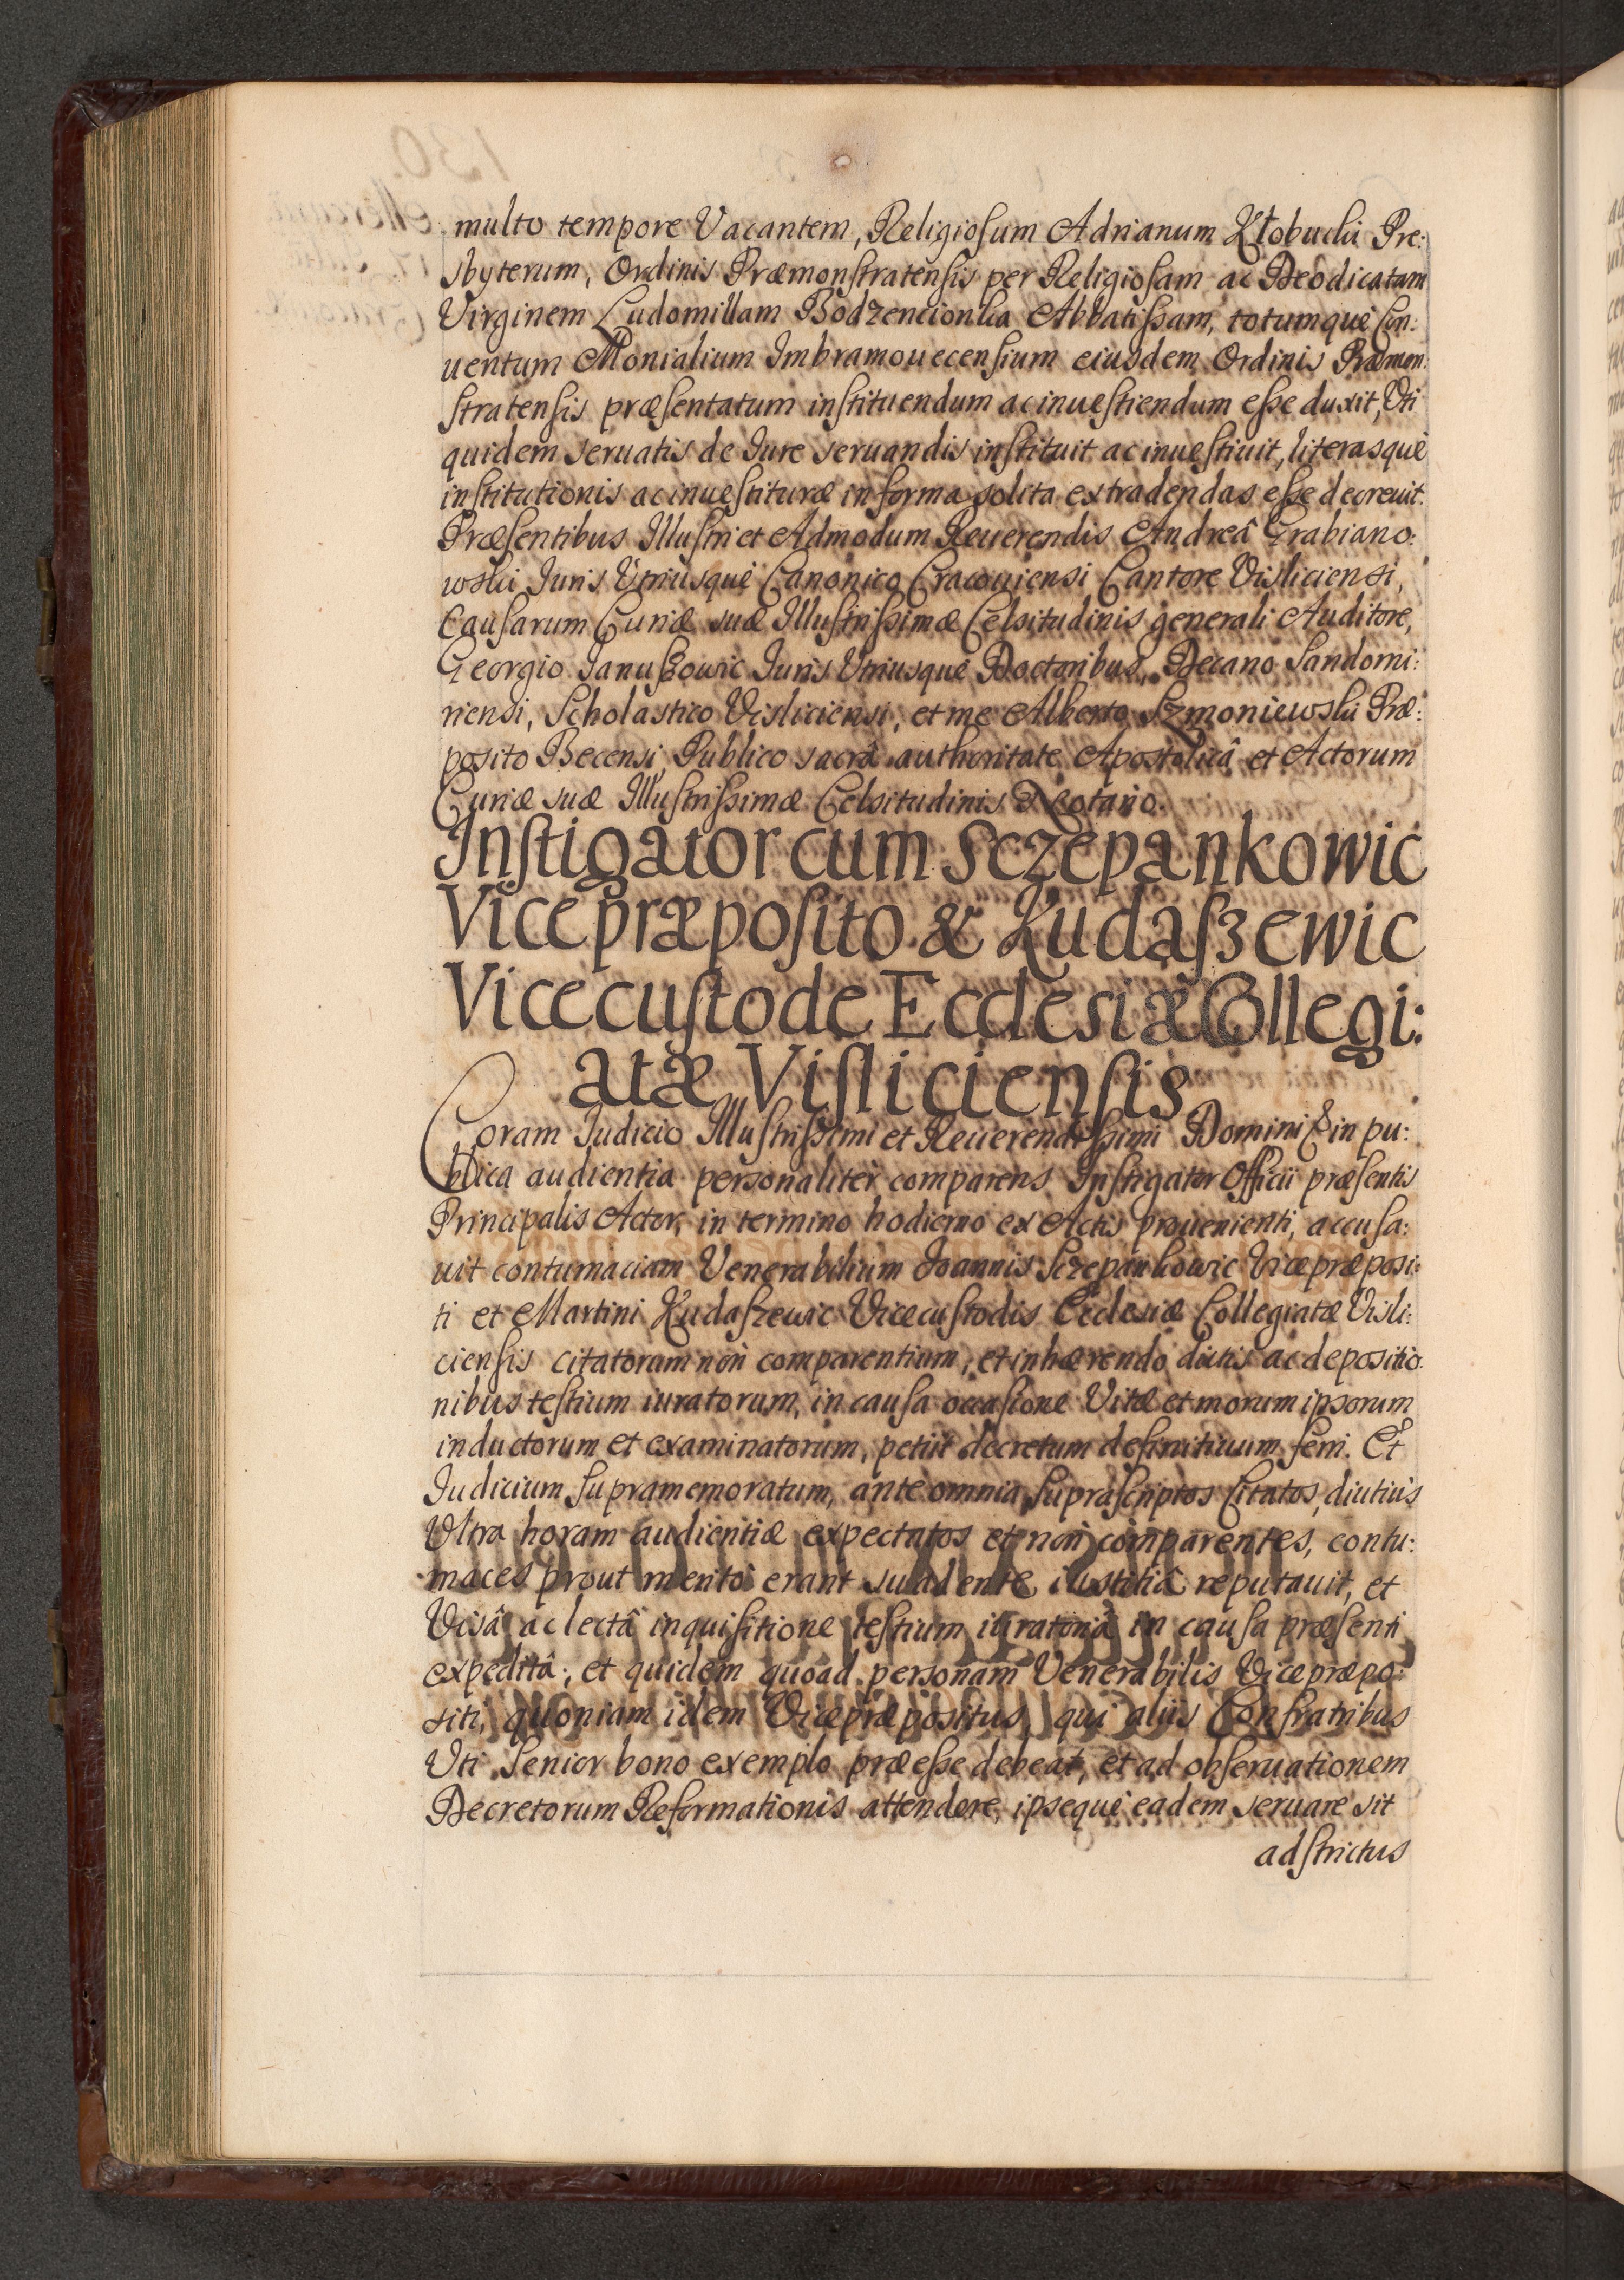 multo tempore Vacantem, Religiosum Adrianum Kłobucki Pre:
sbyterum, Ordinis Præmonstratensis per Religiosam ac Deodicatam
Virginem Ludomillam Bodzencionka Abbatissam, totumque Con:
uentum Monialium Imbramouecensium eiusdem Ordinis Præmon:
stratensis præsentatum instituendum ac inuestiendum esse duxit, Vti
quidem seruatis de Iure seruandis instituit ac inuestiuit, literasque
institutionis ac inuestituræ in forma solita extradendas esse decreuit.
Præsentibus Illustri et Admodum Reuerendis Andreâ Grabiano:
wski Iuris Vtriusque Canonico Cracouiensi Cantore Visliciensi,
Causarum Curiæ suæ Illustrissimæ Celsitudinis generali Auditore,
Georgio Ianuszowic Iuris Vtriusque Doctoribus, Decano Sandomi:
riensi, Scholastico Visliciensi, et me Alberto Szmoniewski Præ:
posito Becensi Publico sacrâ authoritate Apostolicâ et Actorum
Curiæ suæ Illustrissimæ Celsitudinis Notario.
Instigator cum Sczepankowic
Vicepræposito & Kudaszewic
Vicecustode Ecclesiæ Collegi:
atæ Visliciensis
Coram Iudicio Illustrissimi et Reuerendissimi Domini & in pu:
blica audientia personaliter comparens Instigator Officii præsentis
Principalis Actor, in termino hodierno ex Actis prouenienti, accusa:
uit contumaciam Venerabilium Ioannis Sczepankowic Vicepræposi:
ti et Martini Kudaszewic Vicecustodis Ecclesiæ Collegiatæ Visli:
ciensis citatorum non comparentium, et inhærendo dictis ac depositio:
nibus testium iuratorum, in causa occasione Vitæ et morum ipsorum
inductorum et examinatorum, petiit decretum definitiuum ferri. Et
Iudicium supramemoratum, ante omnia suprascriptos Citatos, diutius
Vltra horam audientiæ expectatos et non comparentes, contu:
maces prout merito erant suadente iustitiâ reputauit, et
Visâ ac lectâ inquisitione testium iuratoriâ in causa præsenti
expeditâ, et quidem quoad personam Venerabilis Vicepræpo:
siti, quoniam idem Vicepræpositus, qui aliis Confratribus
Vti Senior bono exemplo præesse debeat, et ad obseruationem
Decretorum Reformationis attendere, ipseque eadem seruare sit
adstrictus